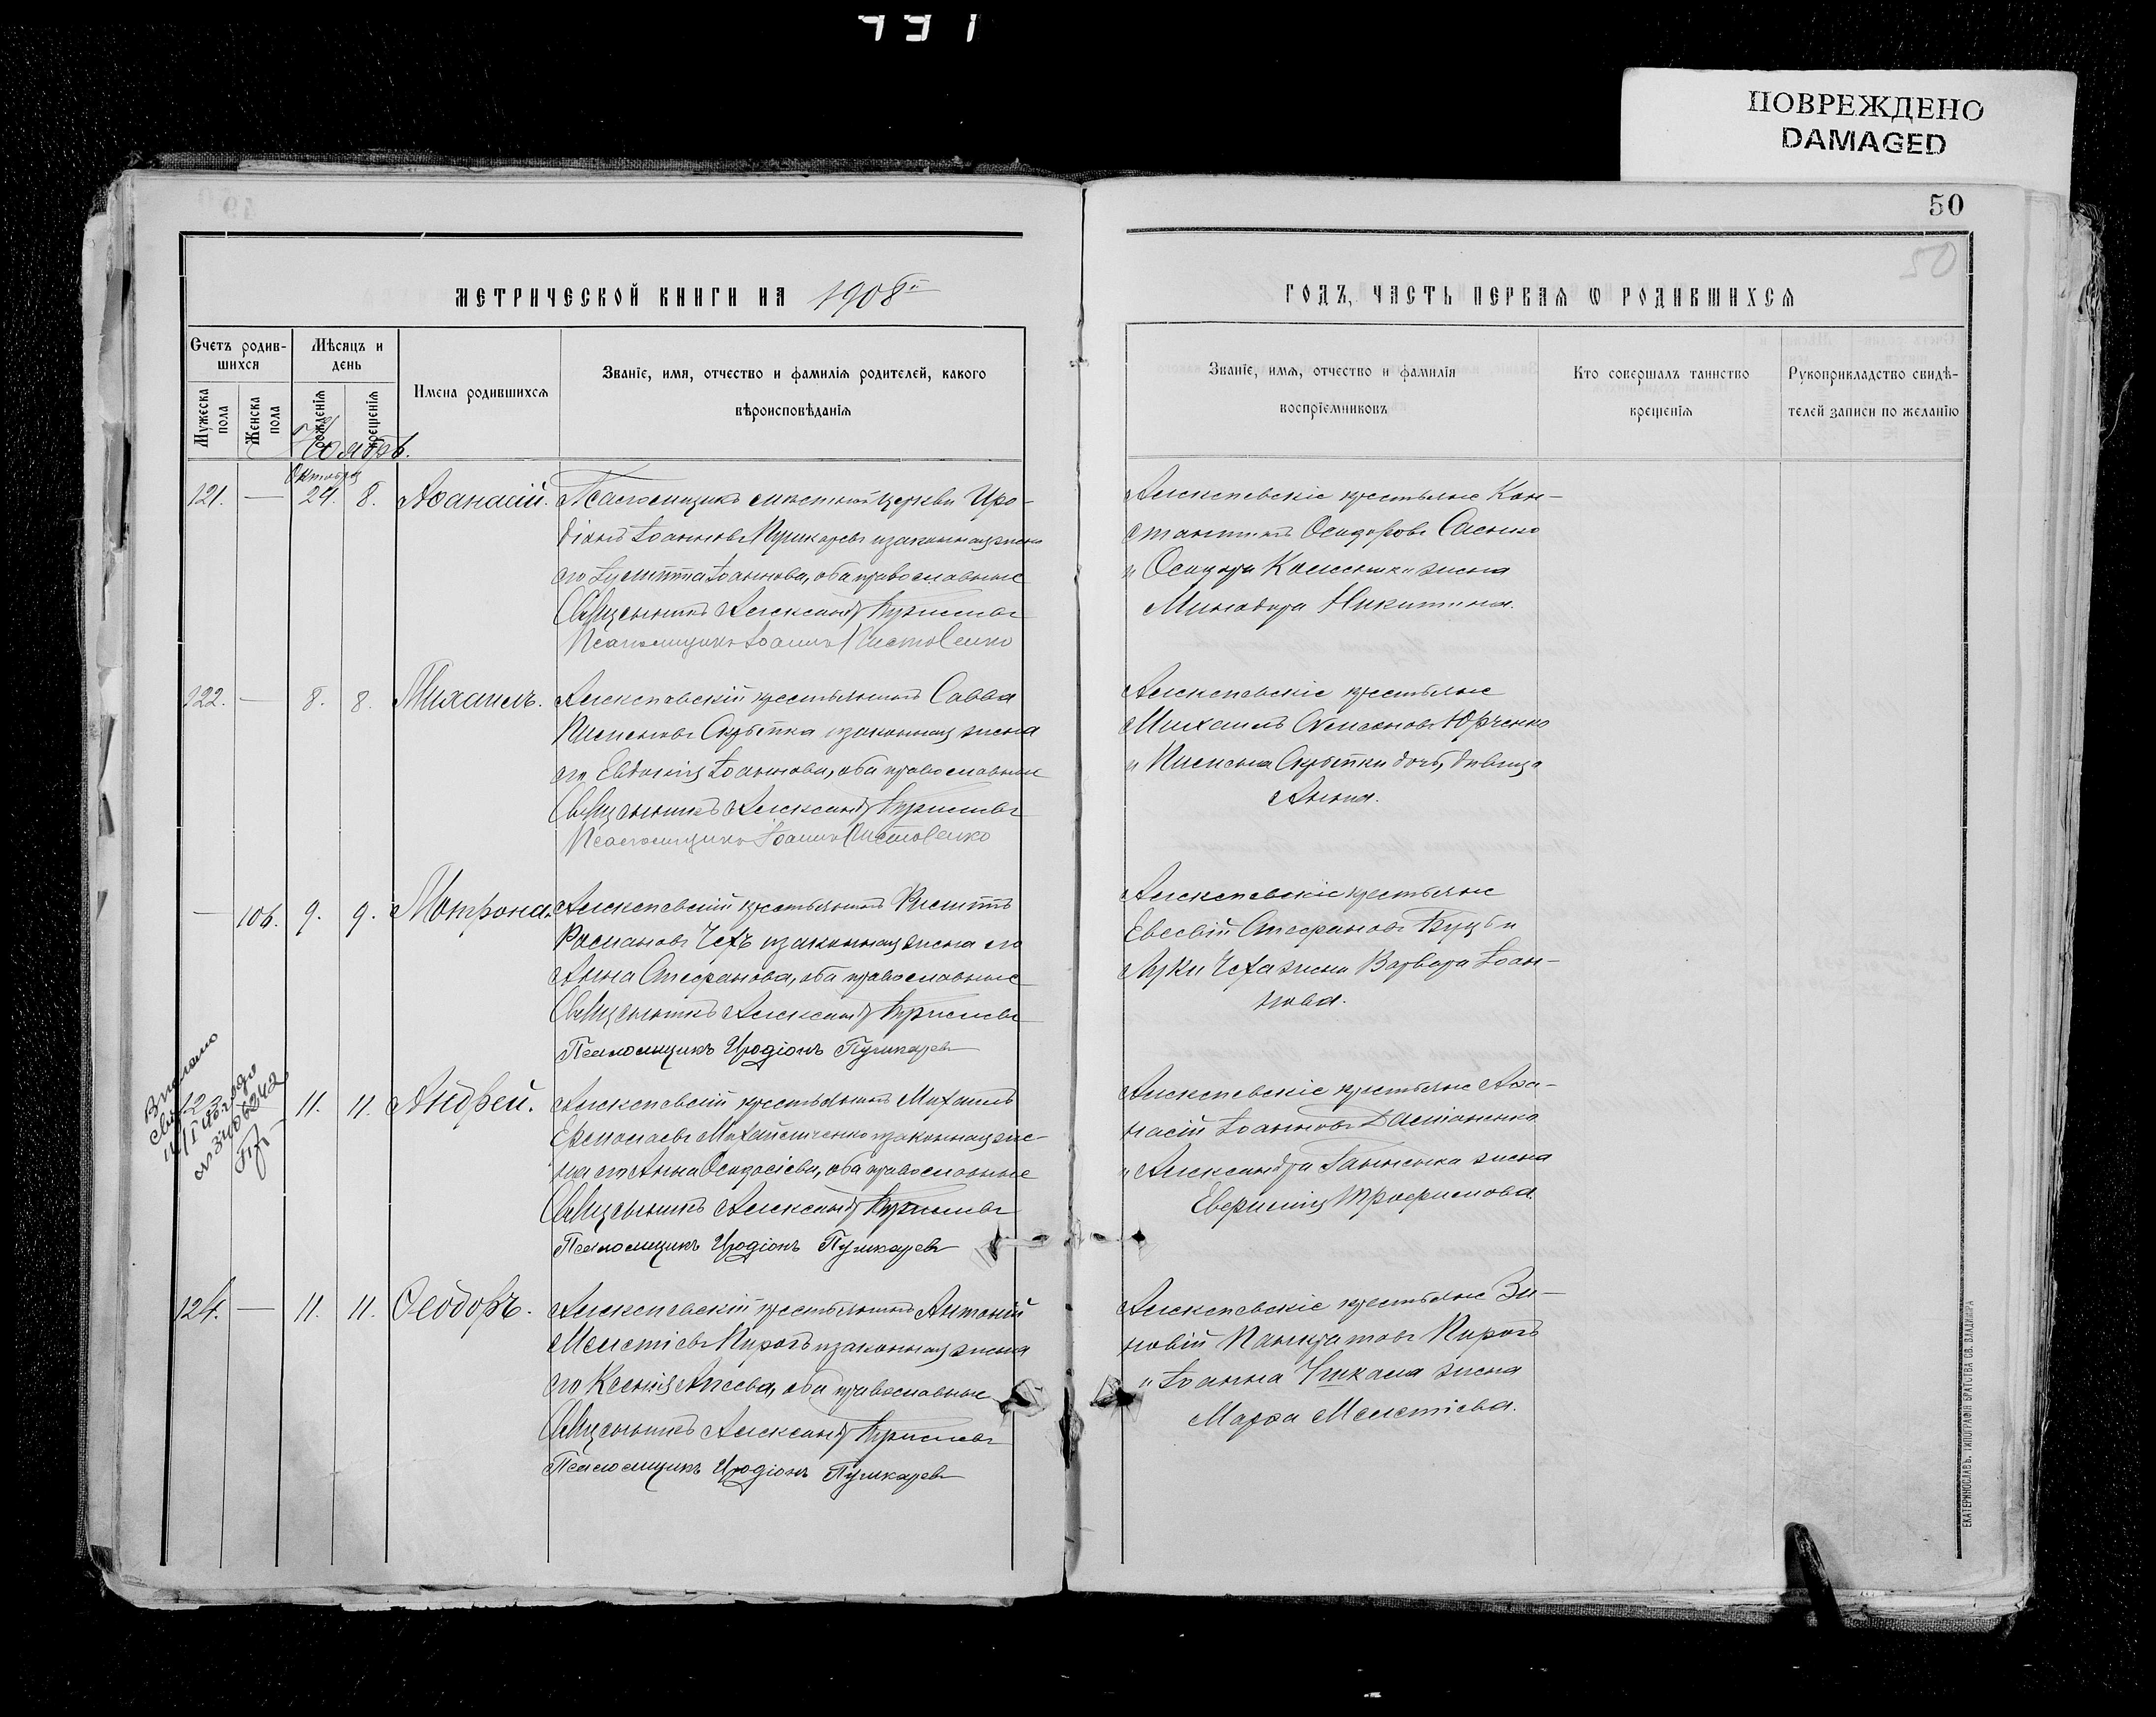 ПОВРЕЖДЕНО
DAMAGED
50
50
МЕТРИЧЕСКОЙ КНИГИ НА 1908й
ГОДЪ, ЧАСТЬ ПЕРВАЯ Ѡ РОДИВШИХСЯ
Счетъ родив-
шихся
Мужеска пола
Женска пола
Мѣсяцъ и
день
рожденія
крещенія
Имена родившихся
Званіе, имя, отчество и фамилія родителей, какого
вѣроисповѣданія
Званіе, имя, отчество и фамилія
воспріемниковъ
Кто совершалъ таинство
крещенія
Рукоприкладство свидѣ-
телей записи по желанію
Ноябрь.
Октября
121. — 24. 8. Аѳанасій. Псаломщикъ мѣстной церкви Иро-
діонъ Іоанновъ Пушкаревъ и законная жена
его Іулитта Іоаннова, оба православные
Священникъ Александръ
Псаломщикъ Іоаннъ
Алексѣевскіе крестьяне Кон-
стантинъ Ѳеодоровъ Сасько
и Ѳеодора жена
Минодора Никитина.
122. — 8. 8. Михаилъ. Алексѣевскій крестьянинъ Савва
Скрыпка и законная жена
его Евдокія Іоаннова, оба православные
Священникъ Александръ
Псаломщикъ Іоаннъ
Алексѣевскіе крестьяне
Михаилъ Юрченко
и Скрыпки дочь, дѣвица
Анна.
— 106. 9. 9. Мотрона. Алексѣевскій крестьянинъ Филиппъ
Романовъ Чехъ и законная жена его
Анна Стефанова, оба православные
Священникъ Александръ
Псаломщикъ Иродіонъ Пушкаревъ
Алексѣевскіе крестьяне
Евсевій Стефановъ Куцъ и
Луки Чеха жена Варвара Іоан-
нова.
— 11. 11. Андрей. Алексѣевскій крестьянинъ Михаилъ
Ермолаевъ Михайличенко и законная же-
на его Анна Ѳеодосіева, оба православные
Священникъ Александръ
Псаломщикъ Иродіонъ Пушкаревъ
Алексѣевскіе крестьяне Аѳа-
насій Іоанновъ
и Александра жена
Трофимова.
124. — 11. 11. Ѳеодоръ. Алексѣевскій крестьянинъ Антоній
Мелетіевъ Пирогъ и законная жена
его Ксенія оба православные
Священникъ Александръ
Псаломщикъ Иродіонъ Пушкаревъ
Алексѣевскіе крестьяне Зи-
новій Панкратовъ Пирогъ
и Іоанна Чикала жена
Марѳа Мелетіева.
ЕКАТЕРИНОСЛАВЪ. ТИПОГРАФІЯ БРАТСТВА СВ. ВЛАДИМІРА